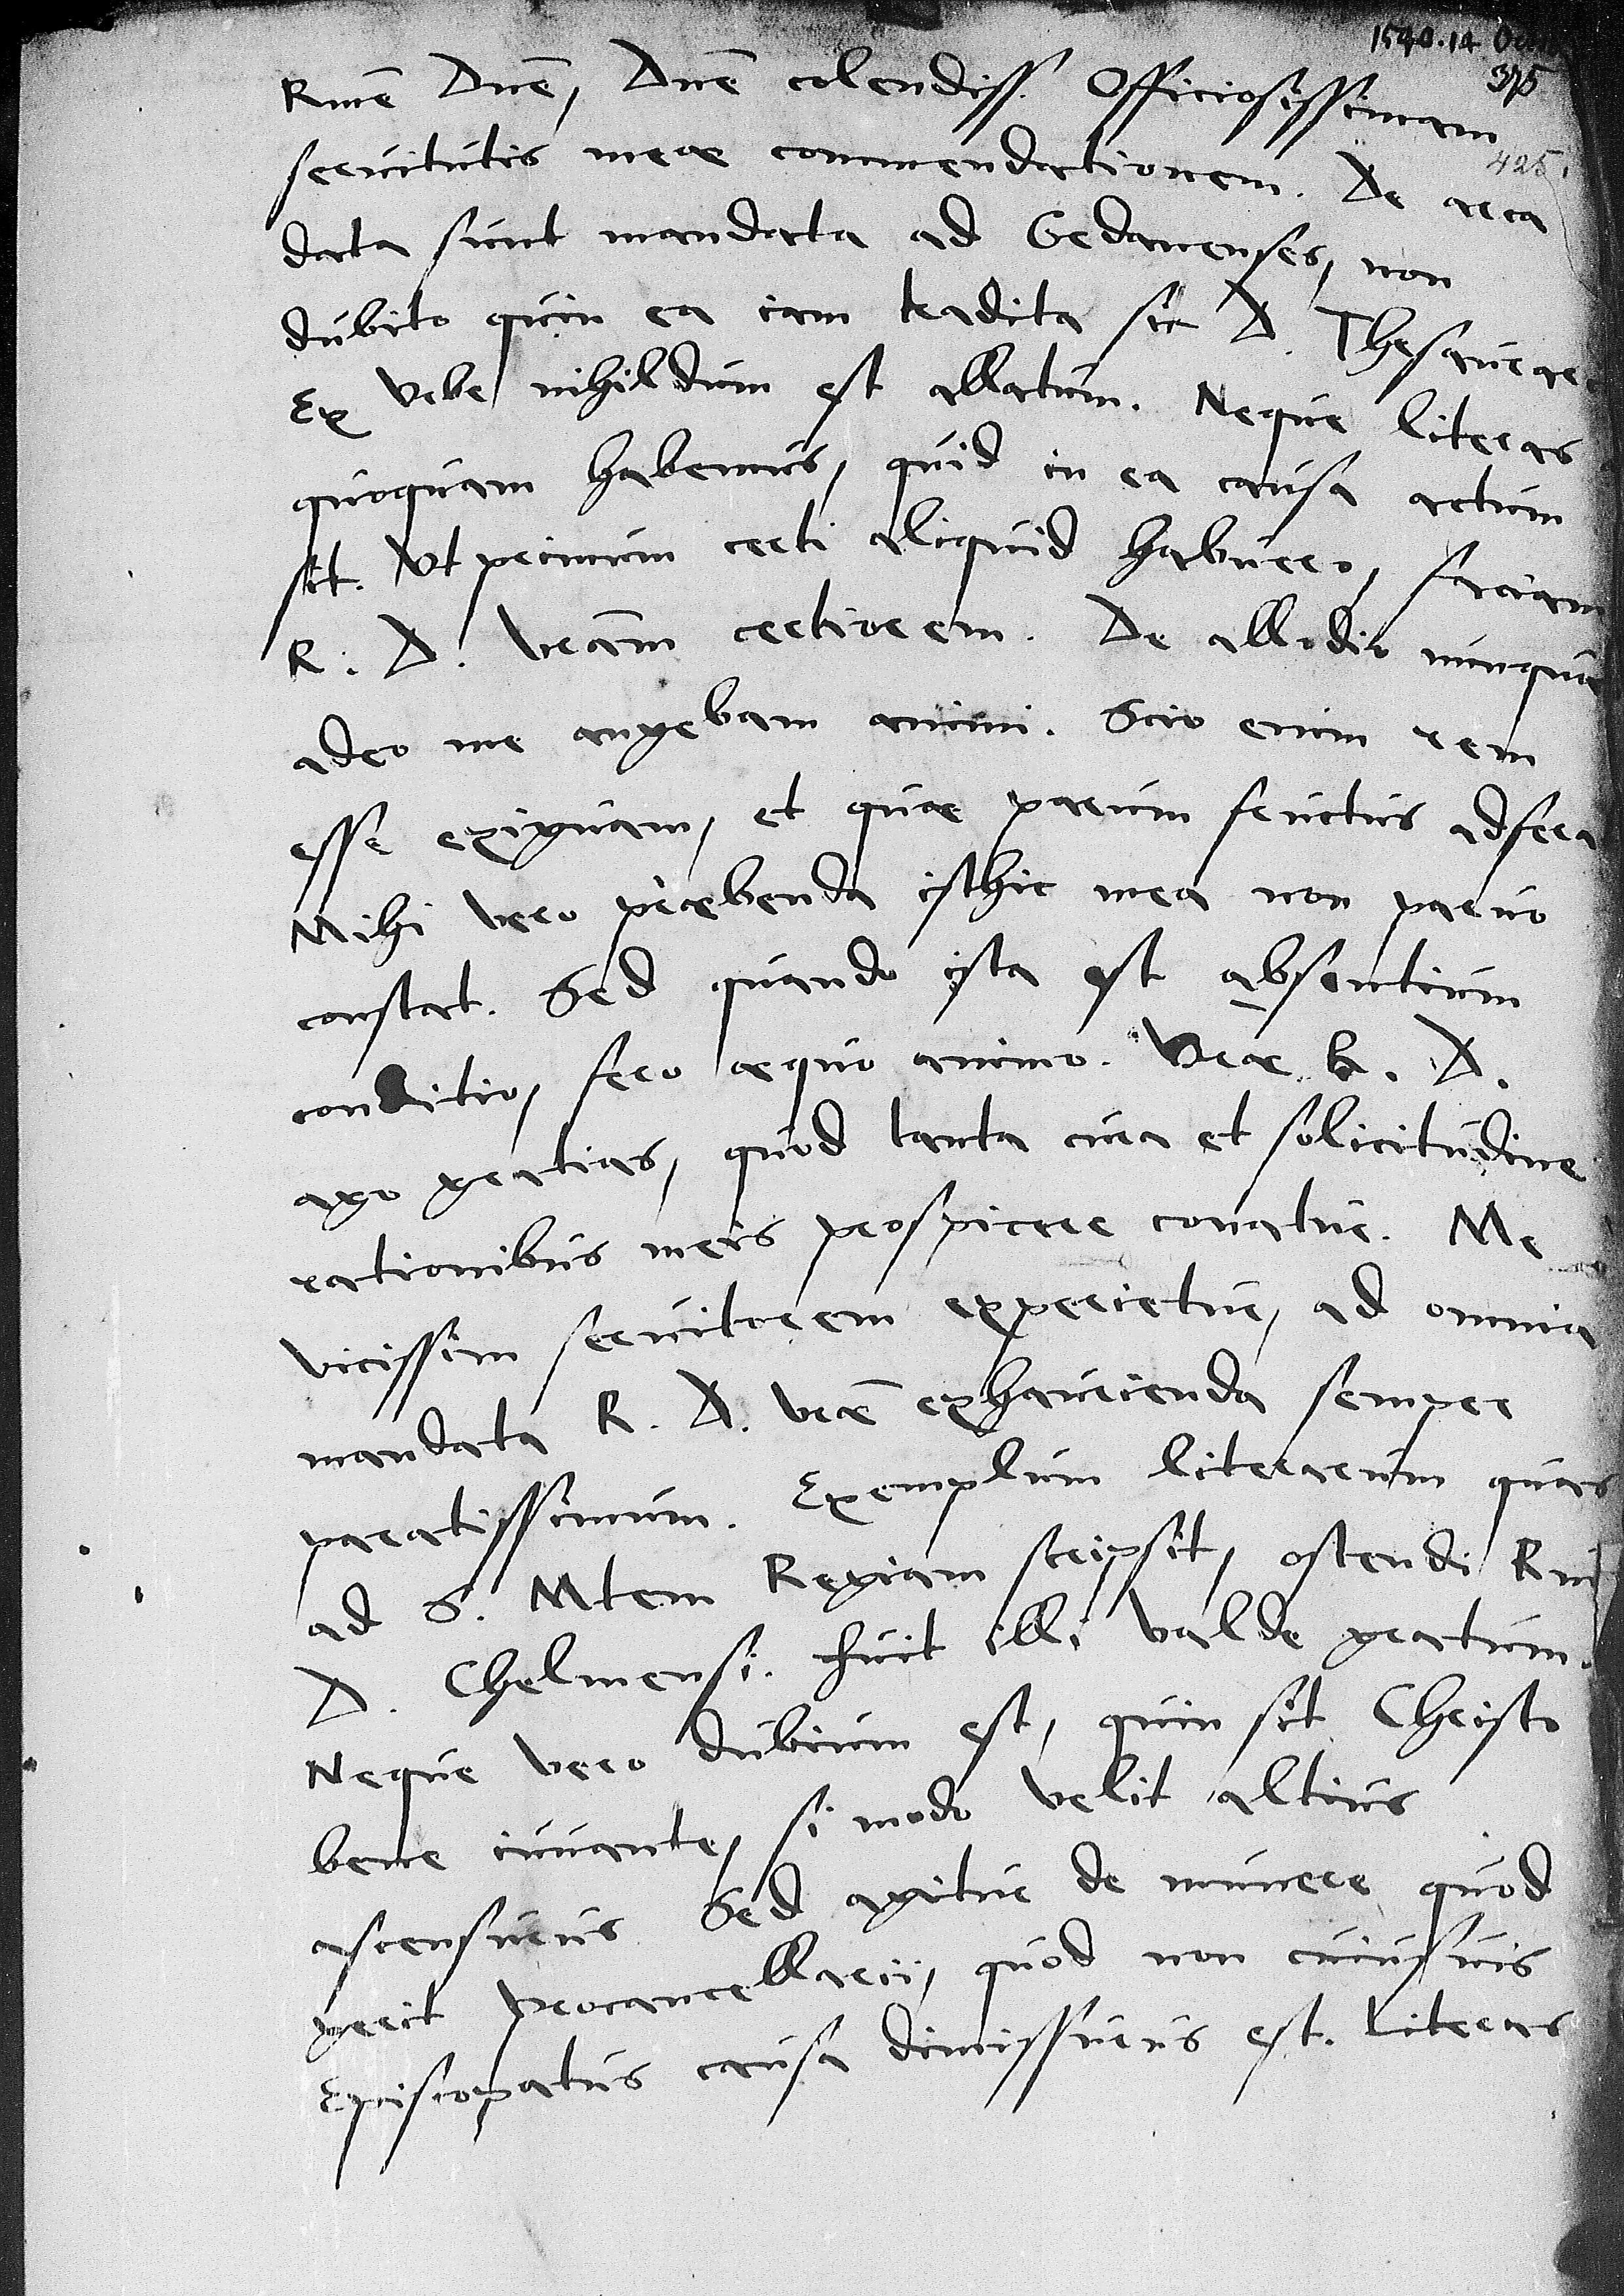 1540. 14 Octob
375
425
Rme Dne, Dne colendiss. Officiosissimam
servitutis meae commendationem. De arca
data sunt mandata ad Gedanenses, non
dubito quin ea iam tradita sit D. Thesaurar
Ex Urbe nihildum est allatum. Neque literas
quoquam habemus, quid in ea causa actum
sit. Ut primum certi aliquid habuero, faciam
R. D. Vram certiorem. De allodio nunqua
adeo me angebam animi. Scio enim rem
esse exiguam, et quae parum fructus adfera
Mihi vero praebenda isthic mea non parvo
constat. Sed quando ista est absentium
conditio, fero aequo animo. Vrae R. D.
ago gratias, quod tanta cura et solicitudine
rationibus meis prospicere conatur. Me
vicissim servitorem experietur, ad omnia
mandata R. D. Vrae exhaurienda semper
paratissimum. Exemplum literarum quas
ad S. Mtem Regiam scripsit, ostendi Rmo
D. Chelmensi. Fuit illi valde gratum.
Neque vero dubium est, quin sit Christo
bene iuvante, si modo velit altius
ascensurus. Sed agitur de munere quod
gerit procancellarii, quod non cuiusvis
Episcopatus causa dimissurus est. Literas